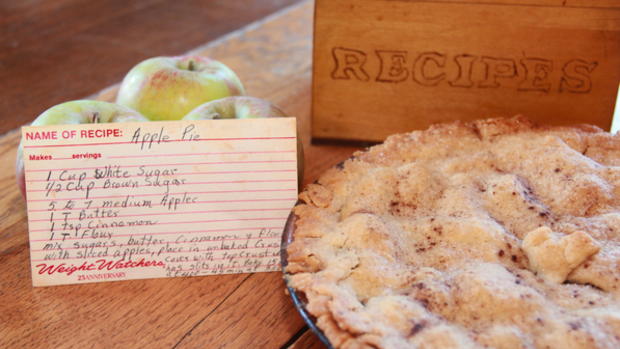 RECIPES
NAME OF RECIPE: Apple Pie
Makes.......servings
1 Cup White Sugar
1/2 Cup Brown Sugar
5 to 7 medium Apples
1 T Butter
1 tsp Cinnamon
1 T Flour
mix sugars, butter, Cinnamon + Flour
with sliced apples, place in unbaked Crust
Cover with top Crust
has slits in it
Weight Watchers
25 ANNIVERSARY